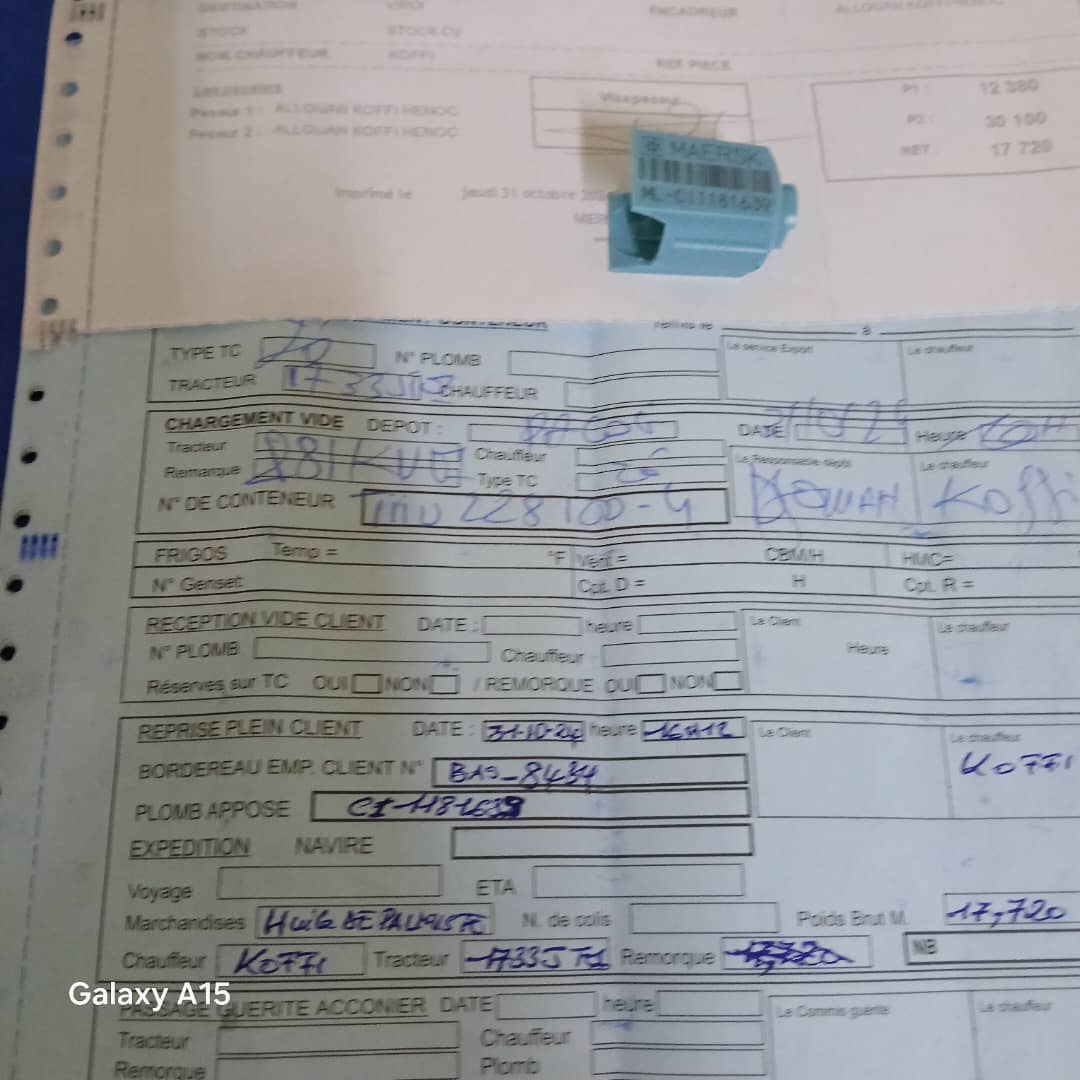 DESTINATION VRIDI ENCADREUR ALLOUAN KOFFI HENOC
STOCK STOCK CV
NOM CHAUFFEUR KOFFI REF PIECE
Peseur 1 : ALLOUAN KOFFI HENOC Visa peseur P1 : 12 380
Peseur 2 : ALLOUAN KOFFI HENOC P2 : 30 100
NET : 17 720
Imprimé le jeudi 31 octobre
MAERSK
ML-CI1181639
TYPE TC 20 N° PLOMB Le service Export Le chauffeur
TRACTEUR CHAUFFEUR
CHARGEMENT VIDE DEPOT : DATE Heure 10H
Tracteur Chauffeur Le Responsable dépôt Le chauffeur
Remarque Type TC 20
N° DE CONTENEUR 228100-4 Koffi
FRIGOS Temp = °F Vent = CBM/H HMC=
N° Genset Cpt. D = H Cpt. R =
RECEPTION VIDE CLIENT DATE : heure Le Client Le chauffeur
N° PLOMB Chauffeur Heure
Réserves sur TC OUI NON / REMORQUE OUI NON
REPRISE PLEIN CLIENT DATE : 31-10-24 heure 16H12 Le Client Le chauffeur
BORDEREAU EMP. CLIENT N° BAS-8434 KOFFI
PLOMB APPOSE CI-1181639
EXPEDITION NAVIRE
Voyage ETA
Marchandises Huile DE PALMISTE N. de colis Poids Brut M. 17,720
Chauffeur KOFFI Tracteur Remorque NB
Galaxy A15
PASSAGE GUERITE ACCONIER DATE heure Le Commis guérite Le chauffeur
Tracteur Chauffeur
Remorque Plomb